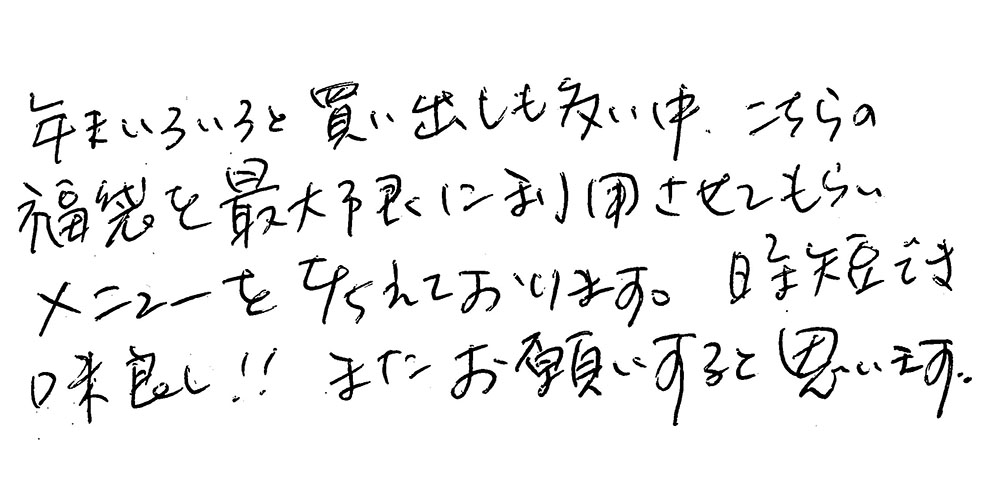 年末いろいろと買い出しも多い中、こちらの
福袋を最大限に利用させてもらい
メニューをたれております。時短でき
味良し!!またお願いすると思います。